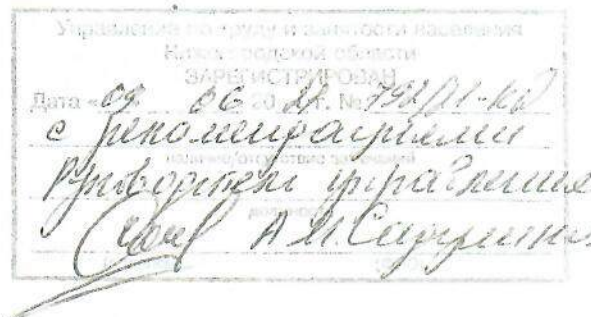 Управление по труду и занятости населения
Нижегородской области
ЗАРЕГИСТРИРОВАН
Дата «09 06 2021 г. № 792/21-КД
с рекомендациями
наличие/отсутствие замечаний
Руководитель управления
должность
А.М.